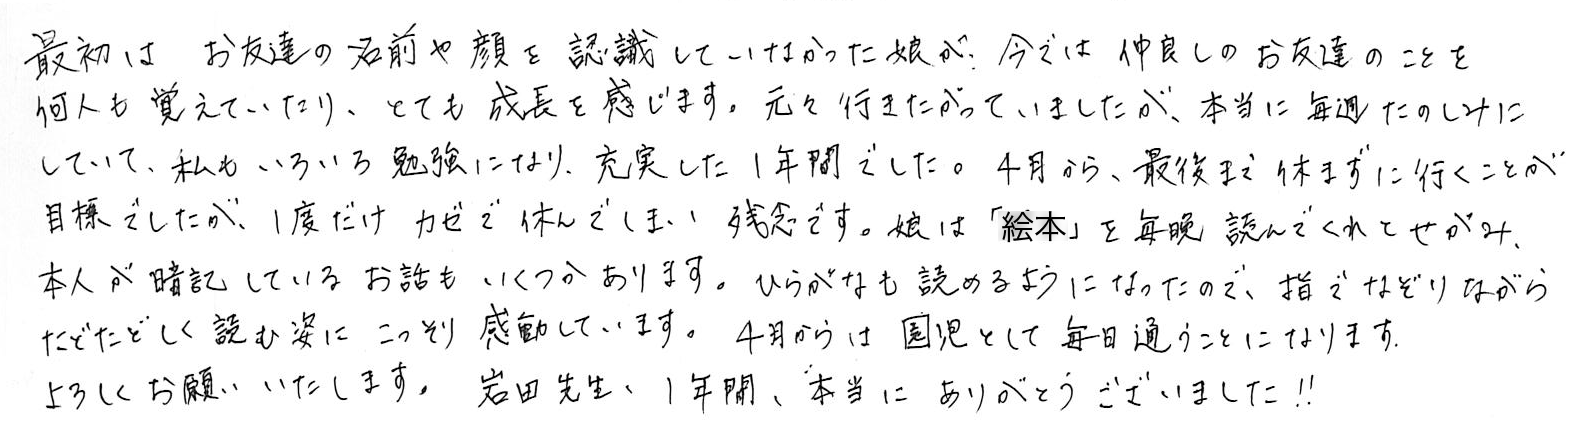 最初は お友達の名前や顔を認識していなかった娘が、今では仲良しのお友達のことを
何人も覚えていたり、とても成長を感じます。元々行きたがっていましたが、本当に毎週たのしみに
していて、私もいろいろ勉強になり、充実した1年間でした。4月から、最後まで休まずに行くことが
目標でしたが、1度だけカゼで休んでしまい残念です。娘は「絵本」を毎晩読んでくれとせがみ、
本人が暗記しているお話もいくつかあります。ひらがなも読めるようになったので、指でなぞりながら
たどたどしく読む姿にこっそり感動しています。4月からは園児として毎日通うことになります。
よろしくお願いいたします。 岩田先生、1年間、本当にありがとうございました!!